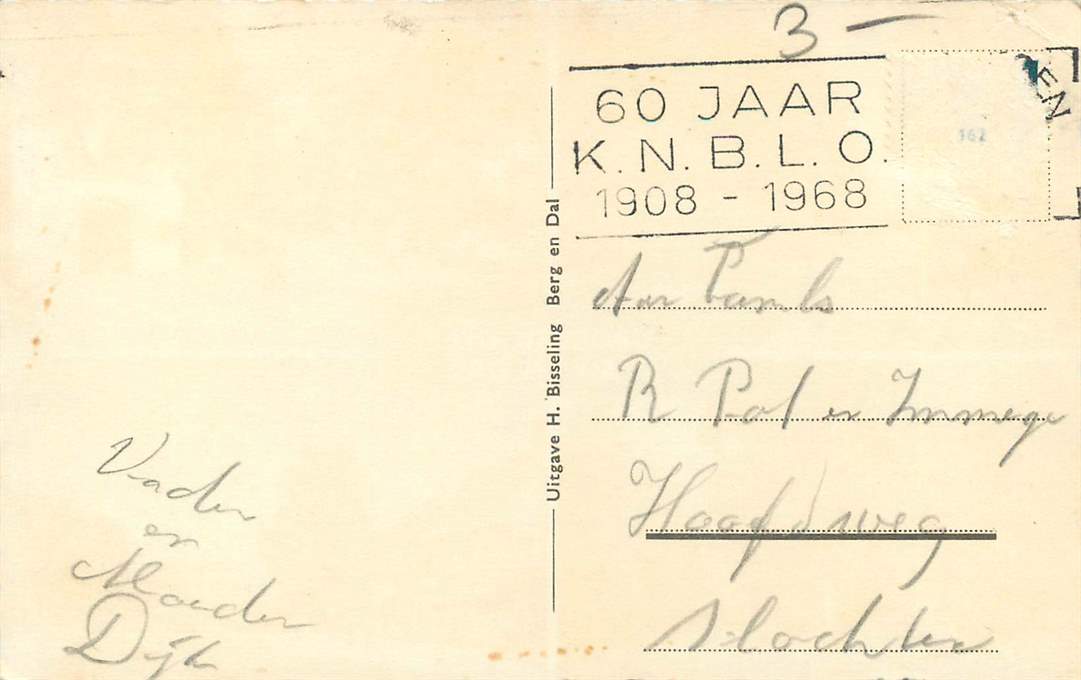 3 —
60 JAAR
K.N.B.L.O.
1908 - 1968
EN
162
Uitgave H. Bisseling Berg en Dal
Aan Famile
R Pol en Immega
Hoofdweg
Slochten
Vader
en
Moeder
Dijk